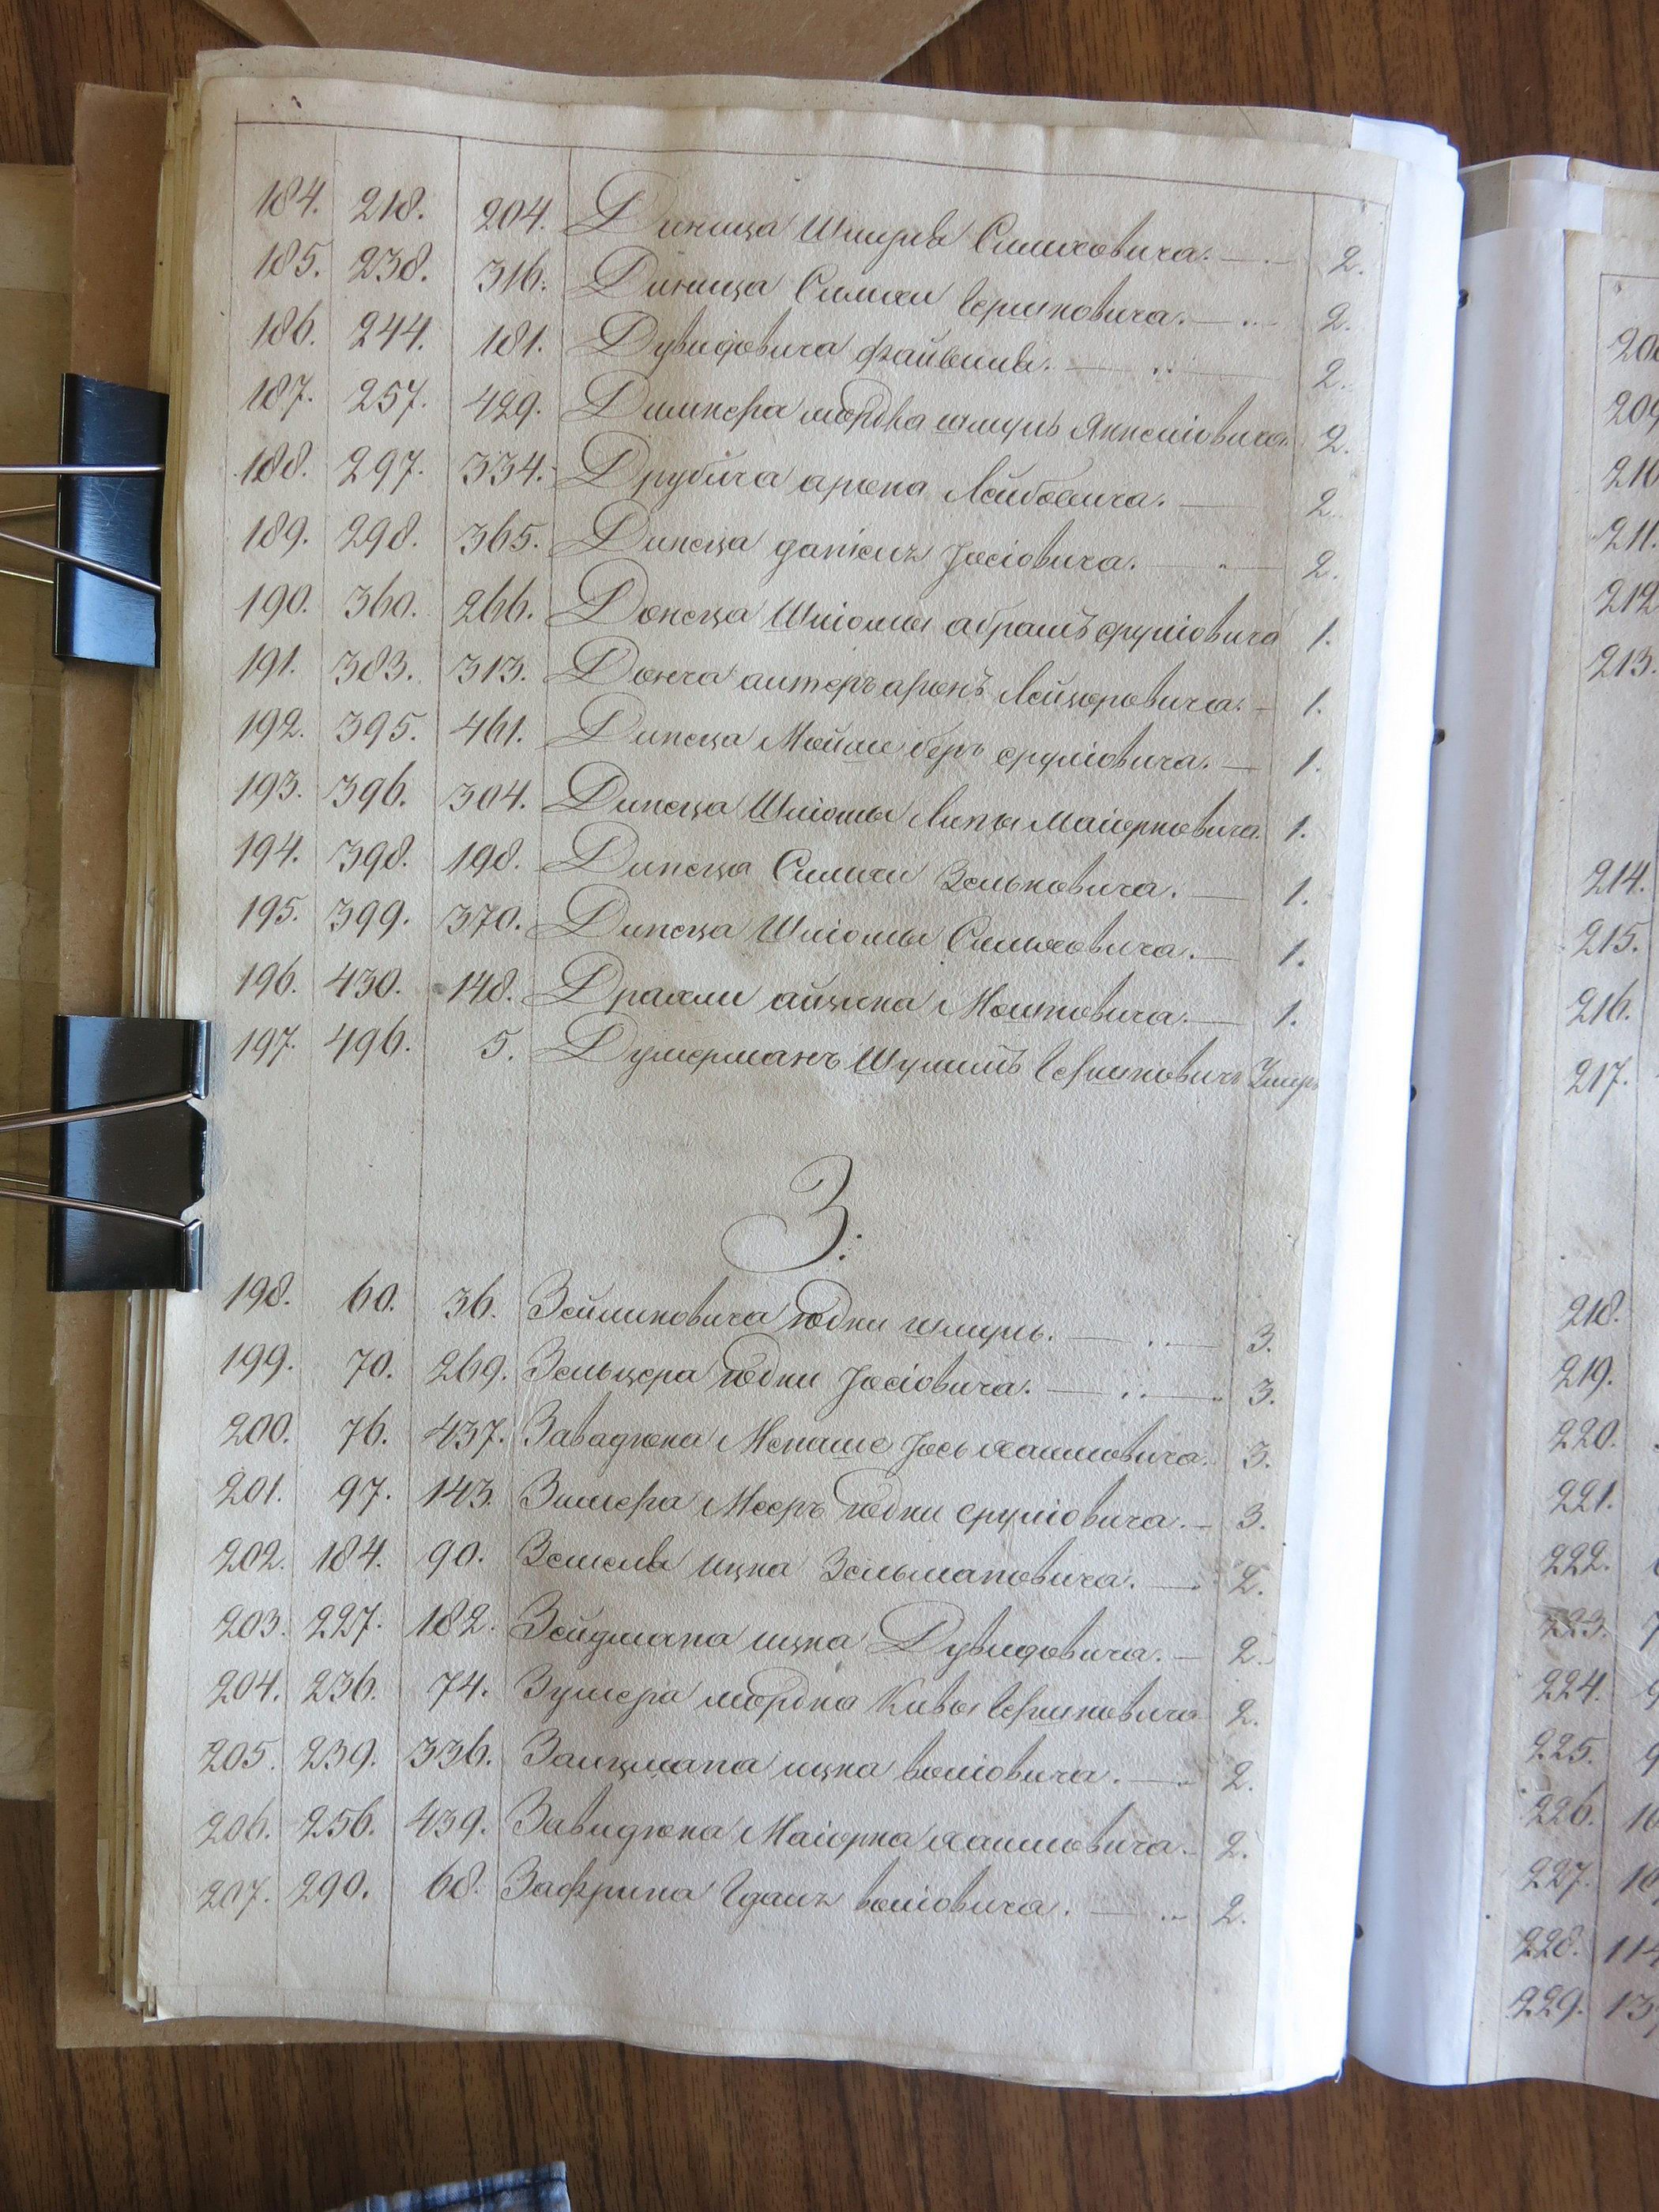 184. 218. 204. Диница Шмуля Симховича. 2.
185. 238. 316. Диница Симхи Гершковича. 2.
186. 244. 181. Дувидовича Файвиша. 2.
187. 257. 429. мордка шмуль Янкелiовича 2.
188. 297. 334. Друбича арона Лейбовича. 2.
189. 298. 365. Динеца данiель Iосiовича. 2.
190. 360. 266. Донеца Шлiомы абрамъ срулiовича 1.
191. 383. 313. Донча антеръ аронъ Лейзоровича. 1.
192. 395. 461. Динеца Мойше беръ срулiовича. 1.
193. 396. 304. Динеца Шлiомы Липы Маiорковича 1.
194. 398. 198. Динеца Симхи Зельковича. 1.
195. 399. 370. Динеца Шлiомы Симховича. 1.
196. 430. 148. Драхли айзика Мошковича. 1.
197. 496. 5. Гершковичъ Умеръ
З:
198. 60. 36. юдки шмуль. 3.
199. 70. 269. Зельцера юдки Iосiовича. 3.
200. 76. 437. Завадюка Менаше Iось хаимовича. 3.
201. 97. 143. Мееръ юдки срулiовича. 3.
202. 184. 90. ицка Зельмановича. 2.
203. 227. 182. Зейдмана ицка Дувидовича. 2.
204. 236. 74. мордко Кивы Гершковича 2.
205. 239. 336. Залцмана ицка волiовича. 2.
206. 256. 439. Завидюка Маiорка хаимовича. 2.
207. 290. 68. Зафрина Гдаль волiовича. 2.
209
210
211.
212
213.
214.
215.
216.
217.
218.
219.
220.
221.
222.
223.
224.
225.
226. 16
227.
228. 114
229. 13